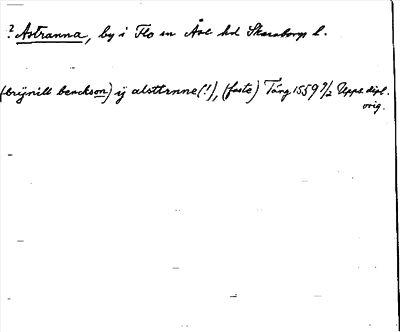 ? Astranna, by i Flo sn Åse hd Skaraborgs l.
(brÿnilt benckson) ij alsttrnne (!), (faste) Täng 1559 7/2 Upps. dipl.
orig.